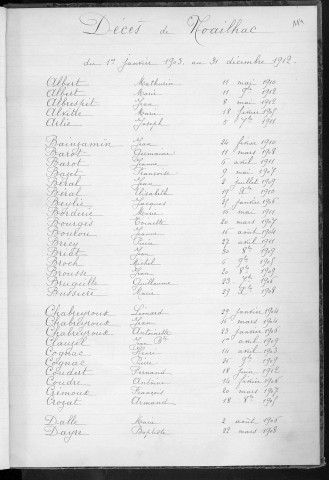 Décès de Noailhac
du 1er janvier 1903 au 31 décembre 1912.
Albert Mathurin 11 mai 1910
Albert Marie 11 9bre 1912
Albrespit Jean 8 mai 1912
Alville Marie 18 février 1905
Arlis Joseph 5 1911
Bainjamin Jean 24 février 1910
Barot Germaine 11 mars 1908
Barot Jeanne 6 avril 1911
Baget Françoise 9 mai 1907
Béral Jean 2 juillet 1909
Béral Elisabeth 1910
Beylie Jacques
Borderie Marie 11 mai 1910
Bourges Toinette 20 mars 1907
Boulou Jeanne 16 août 1904
Bricy 27 avril 1911
Briat Jean 30 1909
Broch Michel 6 1905
Brousse Jean 20 1909
Brugeille Guillaume 23 1906
Bussière Marie 29 1908
Chatrefoux Léonard 29 janvier 1904
Chatrefoux Jean 26 mars 1904
Chatrefoux Antoinette 13 janvier 1906
Clauzel Jean Bte 1er avril 1909
Cognac Henri 14 avril 1903
Cognac Pierre 26 1907
Coudert Fernand 18 juin 1912
Coudre Antoine 14 février 1906
Cremoux François 20 mars 1907
Crozat Armand 18 1905
Dalle Marie 2 août 1906
Dayre Baptiste 22 mars 1908